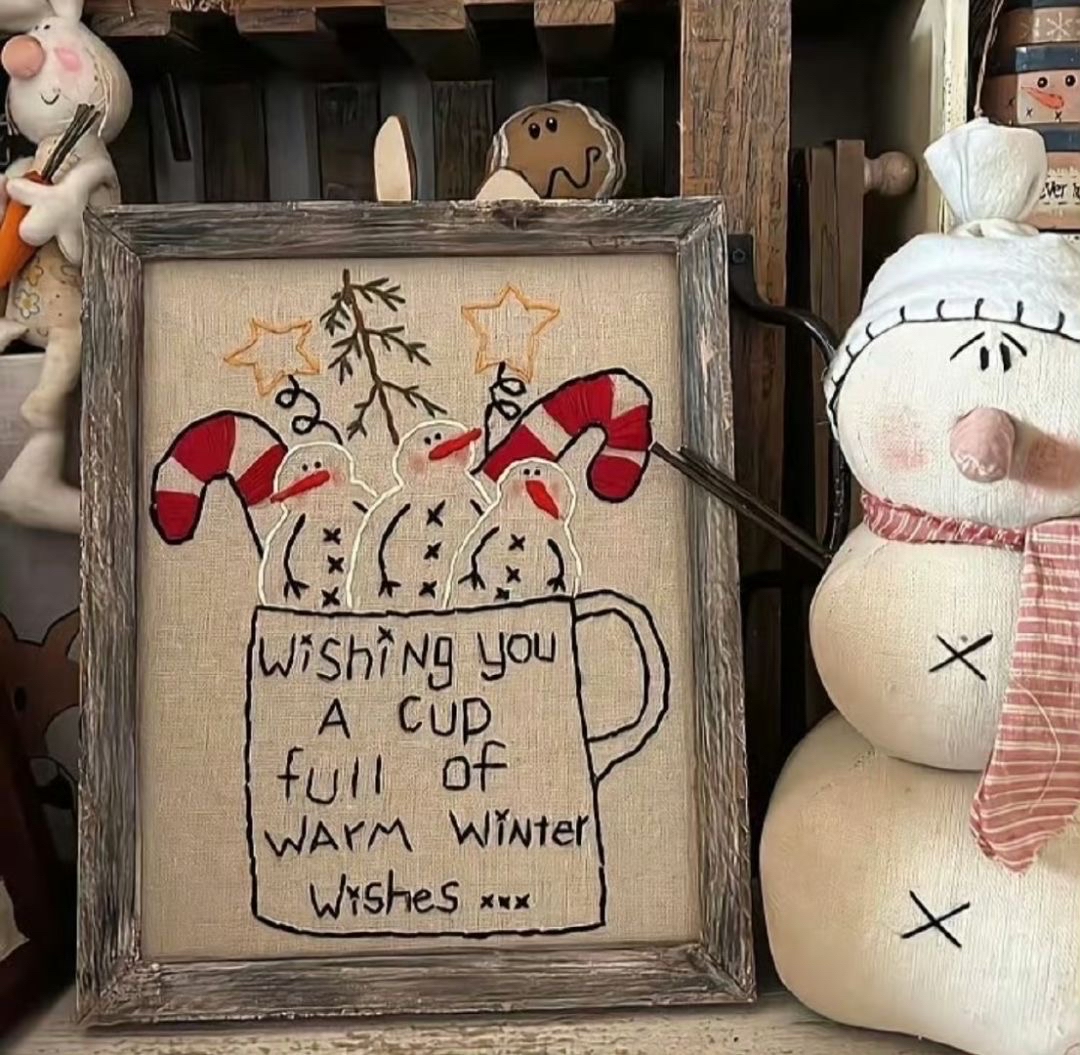 Wishing you
A Cup
full of
WARM Winter
Wishes ...
ever